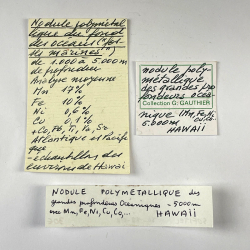 Nodule polymétal
lique du fond
des océans ("fer
et marines")
de 1.000 à 5.000m
de profondeur
Analyse moyenne
Mn 17%
Fe 10%
Ni 0,6%
Cu 0,1%
+ Co, Pb, Ti, Ta, Sr
Atlantique et Pacifi
que
- échantillon des
environs de Hawaï
nodule poly-
métallique
des grandes pro
fondeurs océa-
Collection G. GAUTHIER
nique. (Mn, Fe, Ni,
Cu, Co..
5.000m
HAWAII
NODULE POLYMETALLIQUE des
grandes profondeurs Océaniques - 5000m
avec Mn, Fe, Ni, Cu, Co,... HAWAII